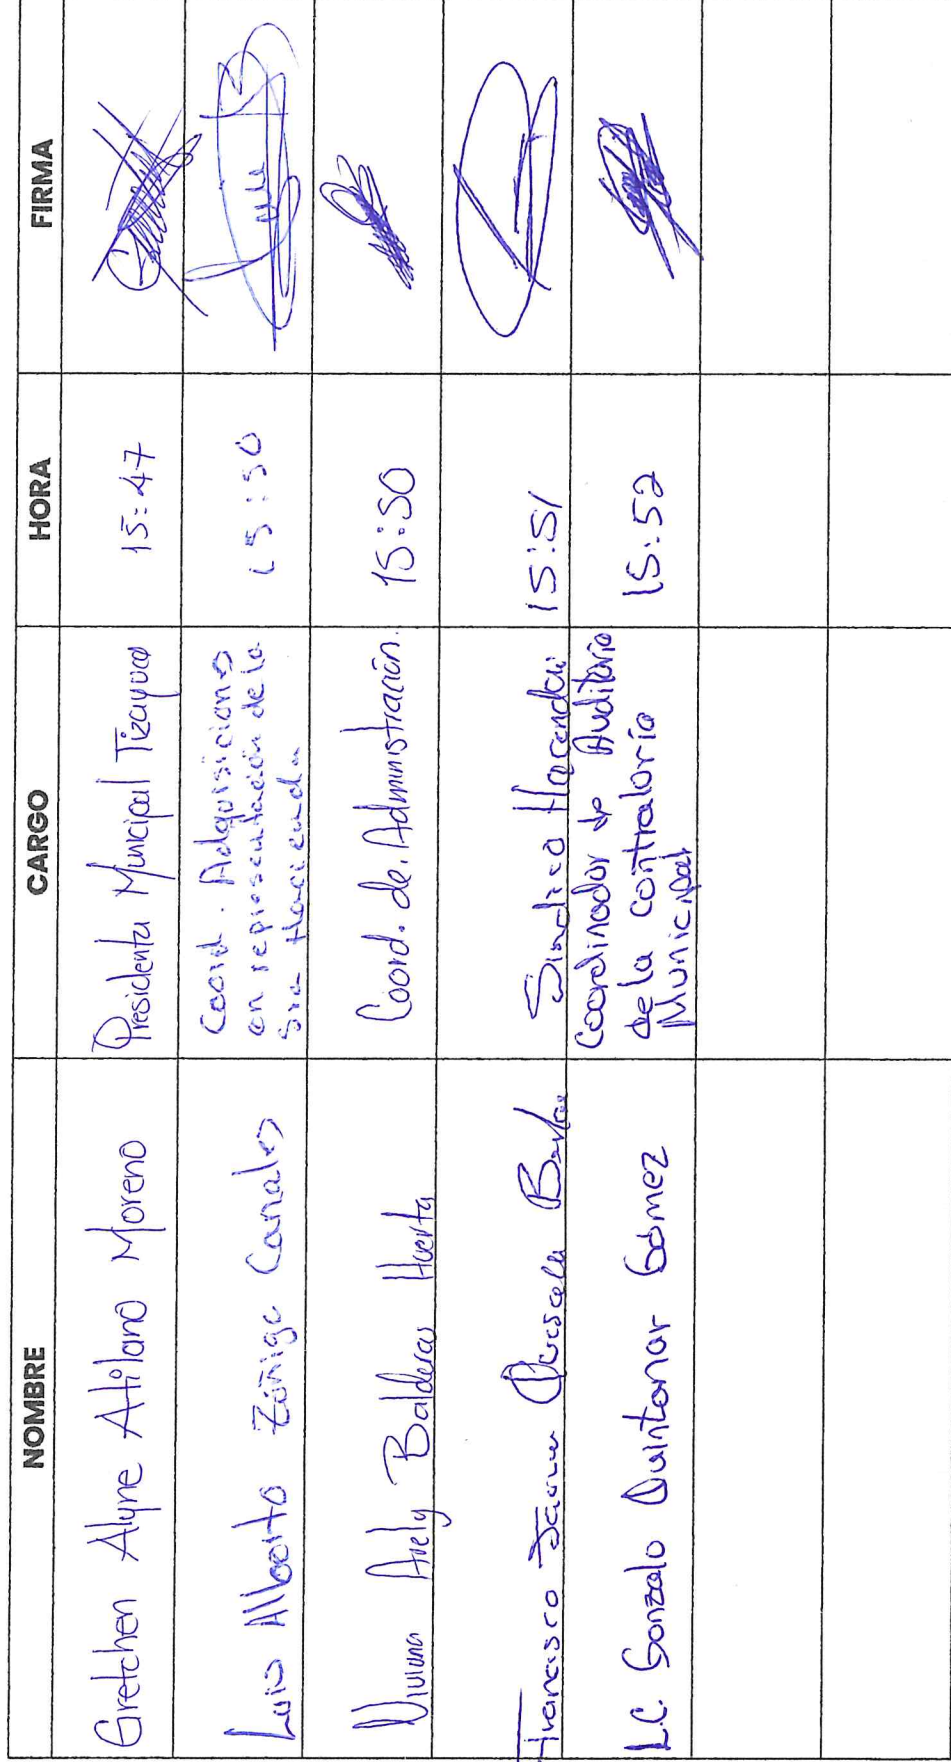 NOMBRE CARGO HORA FIRMA
Gretchen Alyne Atilano Moreno Presidenta Municipal Tizayuca 15:47
Luis Alberto Zúñiga Canales Coord. Adquisiciones
en representación de la
Sria Hacienda 15:50
Viviana Arely Balderas Huerta Coord. de Administración. 15:50
Francisco Javier 15:51
L.C. Gonzalo Quintanar Gómez Coordinador de Auditoría
de la contraloría
Municipal 15:52